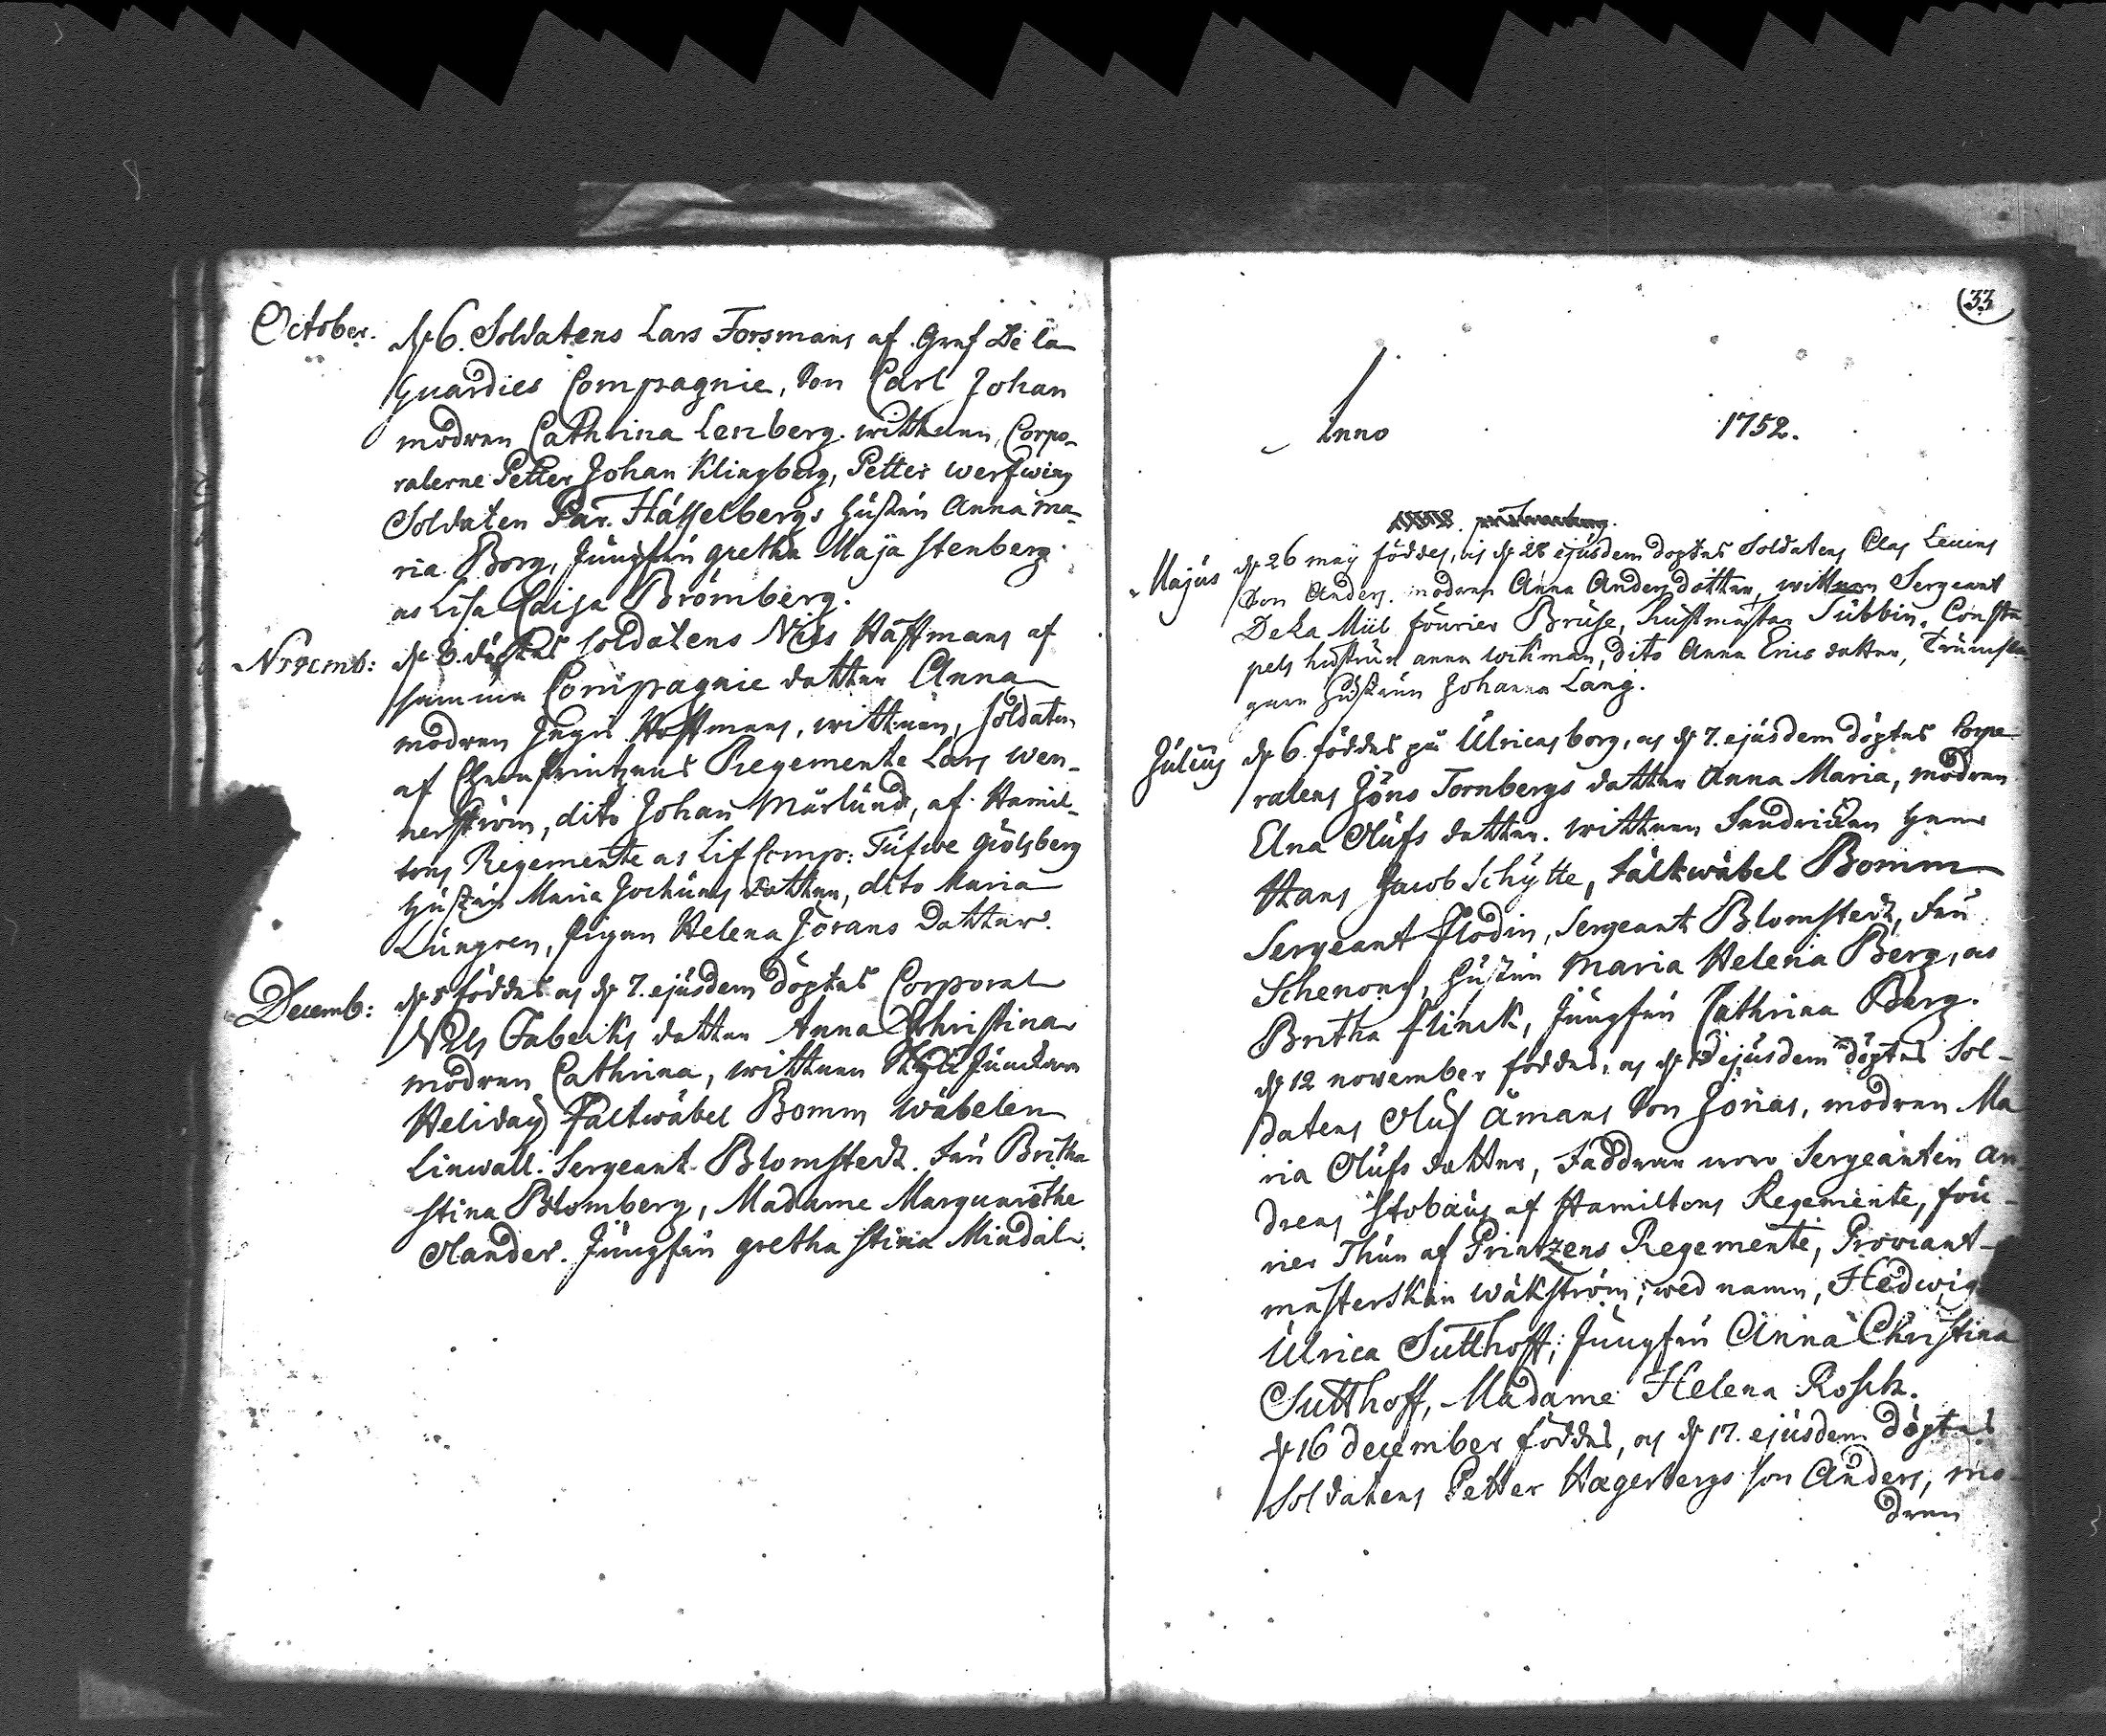 October. d. 6. Soldatens Lars Forsmans af Graf De la
Guardies Compagnie, son Carl Johan
modren Cathrina Lenberg. wittnen, Corpo-
ralerne Petter Johan Klingberg, Petter Werfwing
Soldaten Pär Hässelbergs hustru Anna Ma-
ria Borg, Jungfru Gretha Maja Stenberg
as Lisa Caisa Brömberg.
Novemb: d. 8. döptes soldatens Nils Haffmans af
samma Compagnie dotter Anna
modren Ingri Hoffmans, wittnen, soldaten
af Ehrenprintzens Regemente Lars Wen-
nerström, dito Johan Mårlund, af Hamil-
tons Regemente as Lif Comp: Tufwe
hustru Maria Jochums dotter, dito Maria
Lungren, pigan Helena Jörans dotter.
Decemb: d. 5 föddes as d. 7. ejusdem döptes Corporal
Nils Fabecks dotter Anna Christina
modren Cathrina, wittnen
Heliday Fältwäbel Bomm Wäbelen
Linwall. Sergeant Blomstedt. Fru Britha
Stina Blomberg, Madame Margarethe
Olander. Jungfru Gretha Stina Mindal.
33
Anno 1752.
Majus d. 26 maij föddes, as d. 28 ejusdem döptes Soldatens Clas Leuins
son Anders. modren Anna Anders dotter, wittnen Sergeant
DeLa Mül fourier Bruse, Rustmästar Tubbin, Consta
pels hustrun anna Wikman, dito Anna Erics dotter, Trumsla
garn hustrun Johanna Lang.
Julius d. 6. föddes på Ulricasborg, as d. 7. ejusdem döptes Corpo-
ralens Jöns Tornbergs dotter Anna Maria, modren
Elna Olufs dotter. wittnen Fendricken
Hans Jacob Schytte, Fältwäbel Bomm
Sergeant Flodin, Sergeant Blomstedt, Fru
Schenong, hustru Maria Helena Berg, as
Britha Flinck, Jungfru Cathrina Berg.
d. 12 november föddes, as d. ejusdem döptes Sol-
datens Oluf Åmans son Jonas, modren Ma
ria Olufs dotter, Faddrar woro Sergeanten An
dreas Stobæus af Hamiltons Regemente, fou-
rier Thun af Printzens Regemente, Proviant-
mästerskan Wäkström, wed namn, Hedwig
Ulrica Sutthoff; Jungfru Anna Christina
Sutthoff, Madame Helena Rosch.
d. 16 december föddes, as d. 17. ejusdem döptes
soldatens Petter Hagerbergs son Anders, mo-
dren